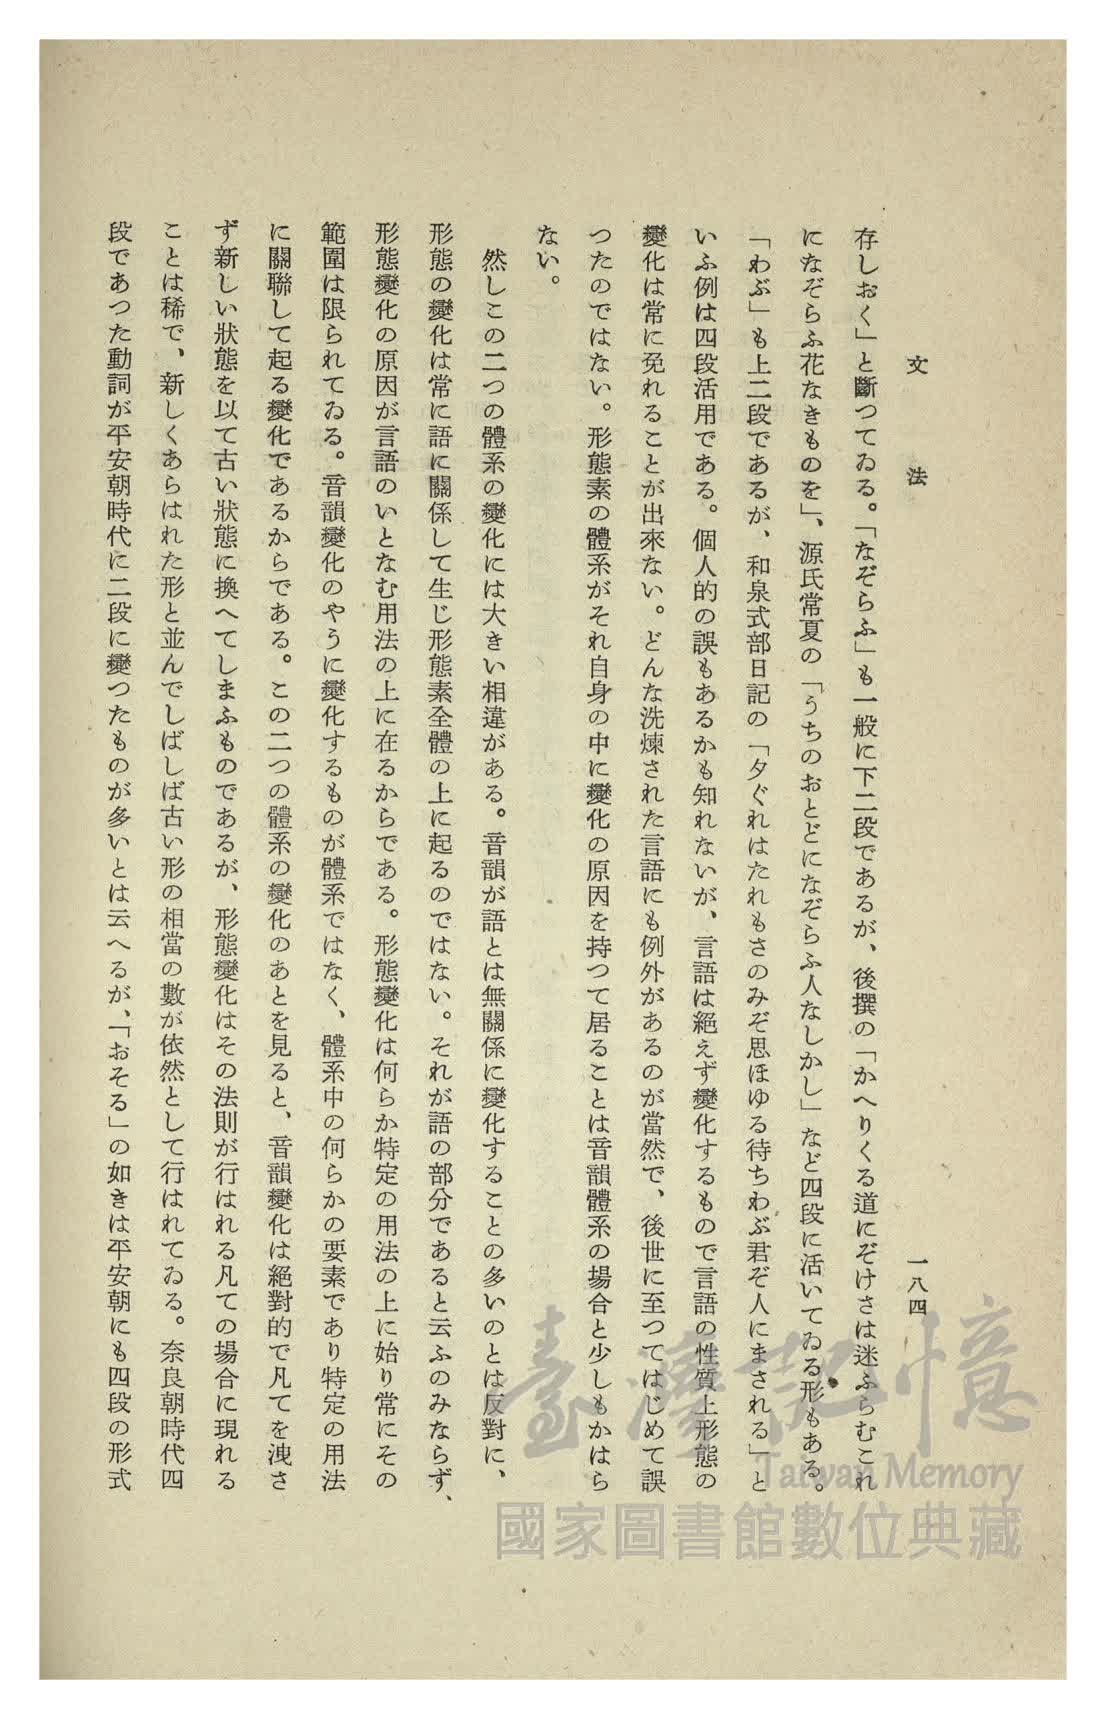 文法
一八四
存しおく」と斷つてゐる。「なぞらふ」も一般に下二段であるが、後撰の「かへりくる道にぞけさは迷ふらむこれ
になぞらふ花なきものを」、源氏常夏の「うちのおとどになぞらふ人なしかし」など四段に活いてゐる形もある。
「わぶ」も上二段であるが、和泉式部日記の「夕ぐれはたれもさのみぞ思ほゆる待ちわぶ君ぞ人にまされる」と
いふ例は四段活用である。個人的の誤もあるかも知れないが、言語は絕えず變化するもので言語の性質上形態の
變化は常に免れることが出來ない。どんな洗煉された言語にも例外があるのが當然で、後世に至つてはじめて誤
つたのではない。形態素の體系がそれ自身の中に變化の原因を持つて居ることは音韻體系の場合と少しもかはら
ない。
然しこの二つの體系の變化には大きい相違がある。音韻が語とは無關係に變化することの多いのとは反對に、
形態の變化は常に語に關係して生じ形態素全體の上に起るのではない。それが語の部分であると云ふのみならず、
形態變化の原因が言語のいとなむ用法の上に在るからである。形態變化は何らか特定の用法の上に始り常にその
範圍は限られてゐる。音韻變化のやうに變化するものが體系ではなく、體系中の何らかの要素であり特定の用法
に關聯して起る變化であるからである。この二つの體系の變化のあとを見ると、音韻變化は絕對的で凡てを洩さ
ず新しい狀態を以て古い狀態に換へてしまふものであるが、形態變化はその法則が行はれる凡ての場合に現れる
ことは稀で、新しくあらはれた形と並んでしばしば古い形の相當の數が依然として行はれてゐる。奈良朝時代四
段であつた動詞が平安朝時代に二段に變つたものが多いとは云へるが、「おそる」の如きは平安朝にも四段の形式
臺灣記憶
Taiwan Memory
國家圖書館數位典藏